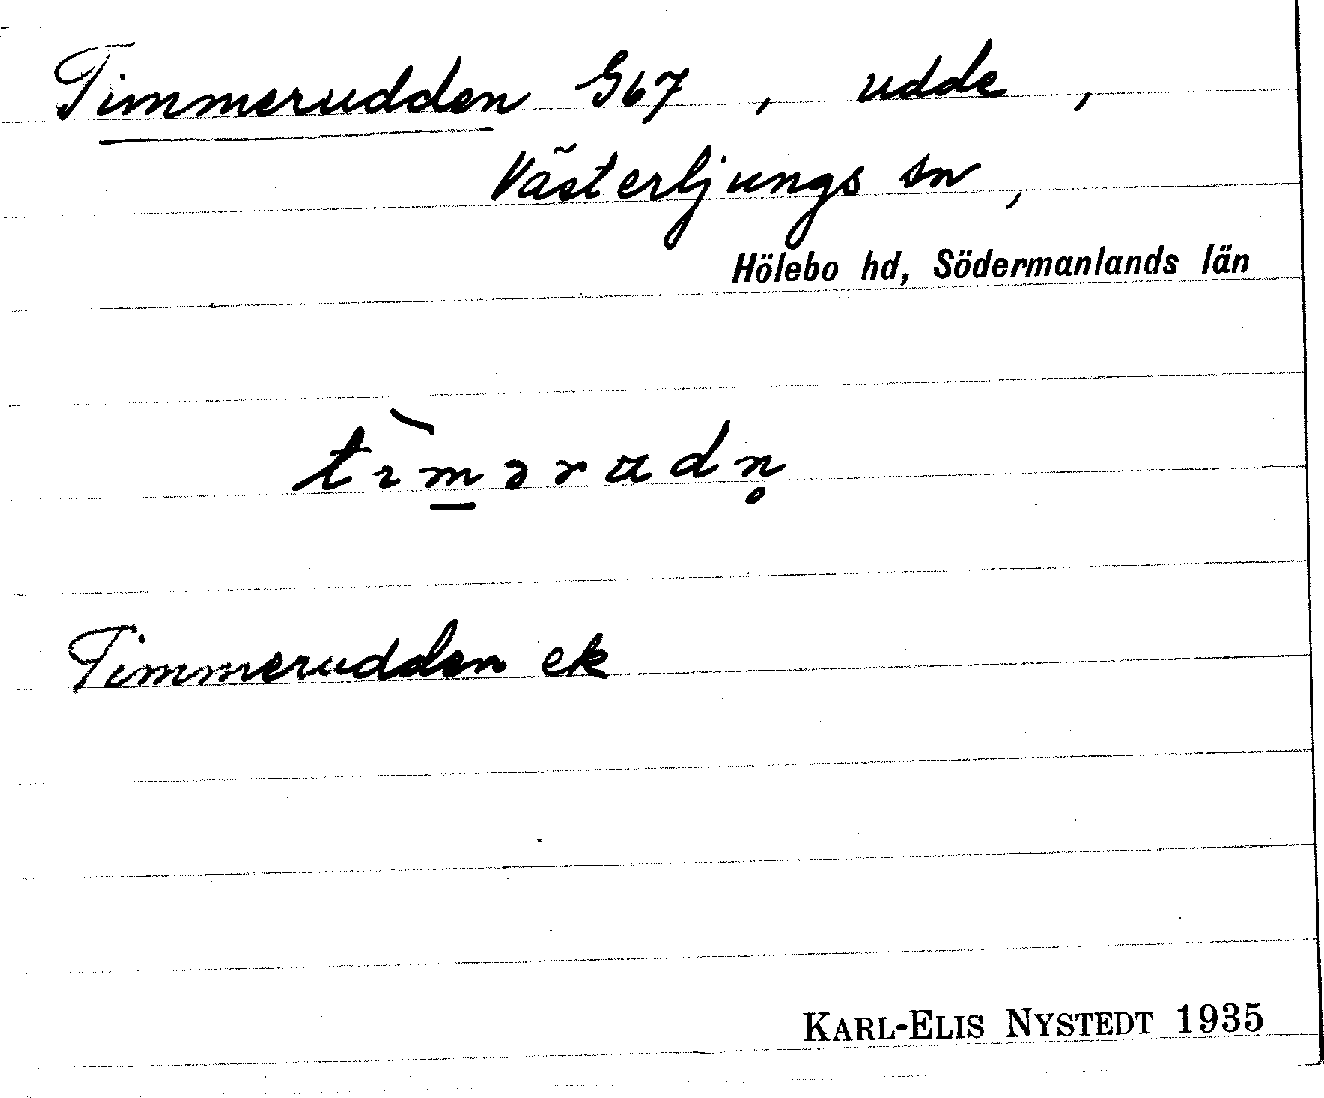 Timmerudden G67, udde,
Västerljungs sn,
Hölebo hd, Södermanlands län
tìmərudn̥
Timmerudden ek
KARL-ELIS NYSTEDT 1935